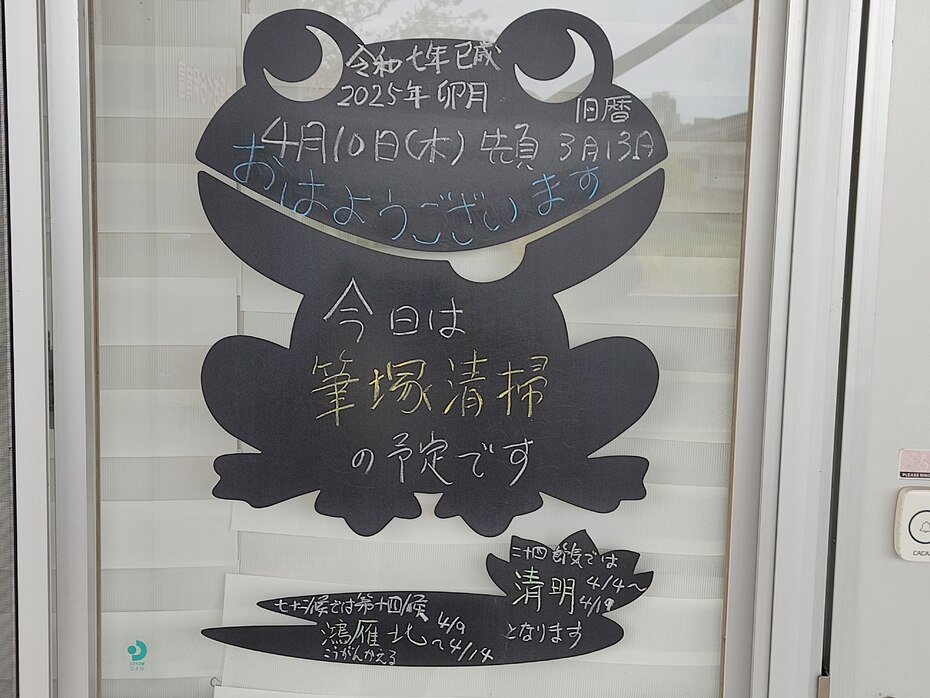 令和七年 巳歳
2025年 卯月
旧暦
4月10日(木) 先負 3月13日
おはようございます
今日は
筆塚清掃
の予定です
二十四節気では
清明 4/4〜
4/19
となります
七十二候では第十四候
鴻雁北 4/9
〜4/14
こうがんかえる
PLEASE RING